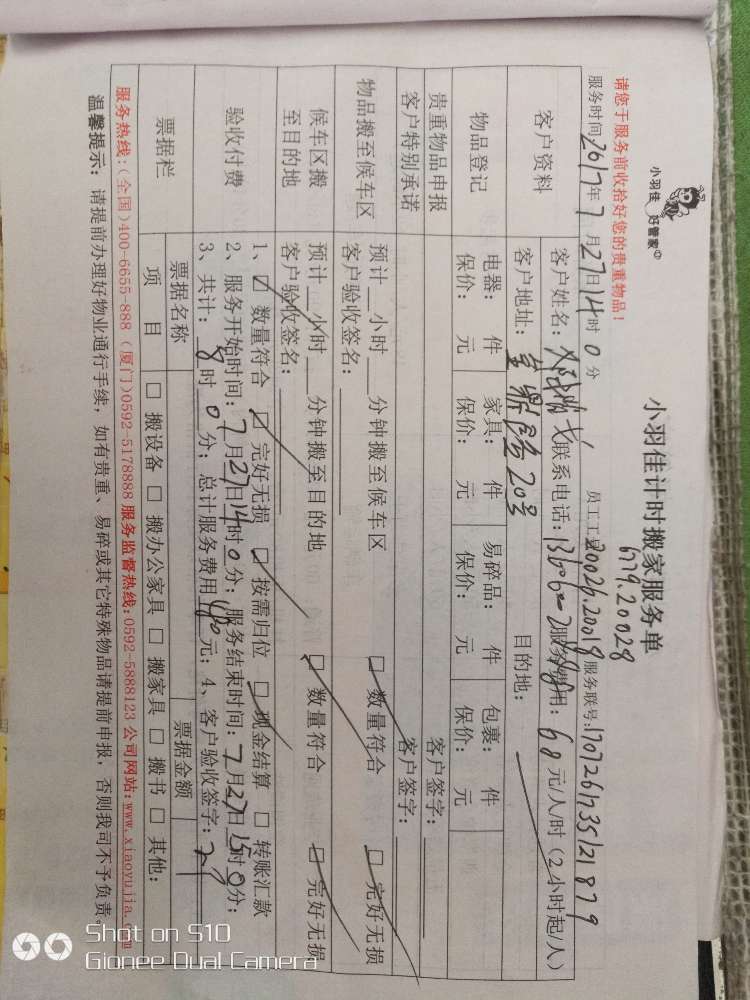 小羽佳 好管家
小羽佳计时搬家服务单
请您于服务前收拾好您的贵重物品!
6779.20028
服务时间 2017年7月27日14时0分 员工工号 20026.20018 服务联号:170726173512 1879
客户资料
客户姓名: 联系电话: 服务费用: 68元/人/时(2小时起/人)
客户地址: 20号 目的地:
物品登记
电器: 件 家具: 件 易碎品: 件 包裹: 件
保价: 元 保价: 元 保价: 元 保价: 元
贵重物品申报 客户签字:
客户特别承诺 客户签字:
物品搬至候车区
预计 小时 分钟搬至候车区 □ 数量符合 □ 完好无损
客户验收签名:
候车区搬至目的地
预计 小时 分钟搬至目的地 □ 数量符合 □ 完好无损
客户验收签名:
验收付费
1、□ 数量符合 □ 完好无损 □ 按需归位 □ 现金结算 □ 转账汇款
2、服务开始时间:7月27日14时0分;服务结束时间:7月27日15时0分;
3、共计:8时0分;总计服务费用 元;4、客户验收签字:
票据栏
票据名称 票据金额
项目 □ 搬设备 □ 搬办公家具 □ 搬家具 □ 搬书 □ 其他:
服务热线:(全国)400-6655-888 (厦门)0592-5178888 服务监督热线:0592-5888123 公司网站:www.xiaoyujia.com
温馨提示: 请提前办理好物业通行手续,如有贵重、易碎或其它特殊物品请提前申报,否则我司不予负责。
Shot on S10
Gionee Dual Camera